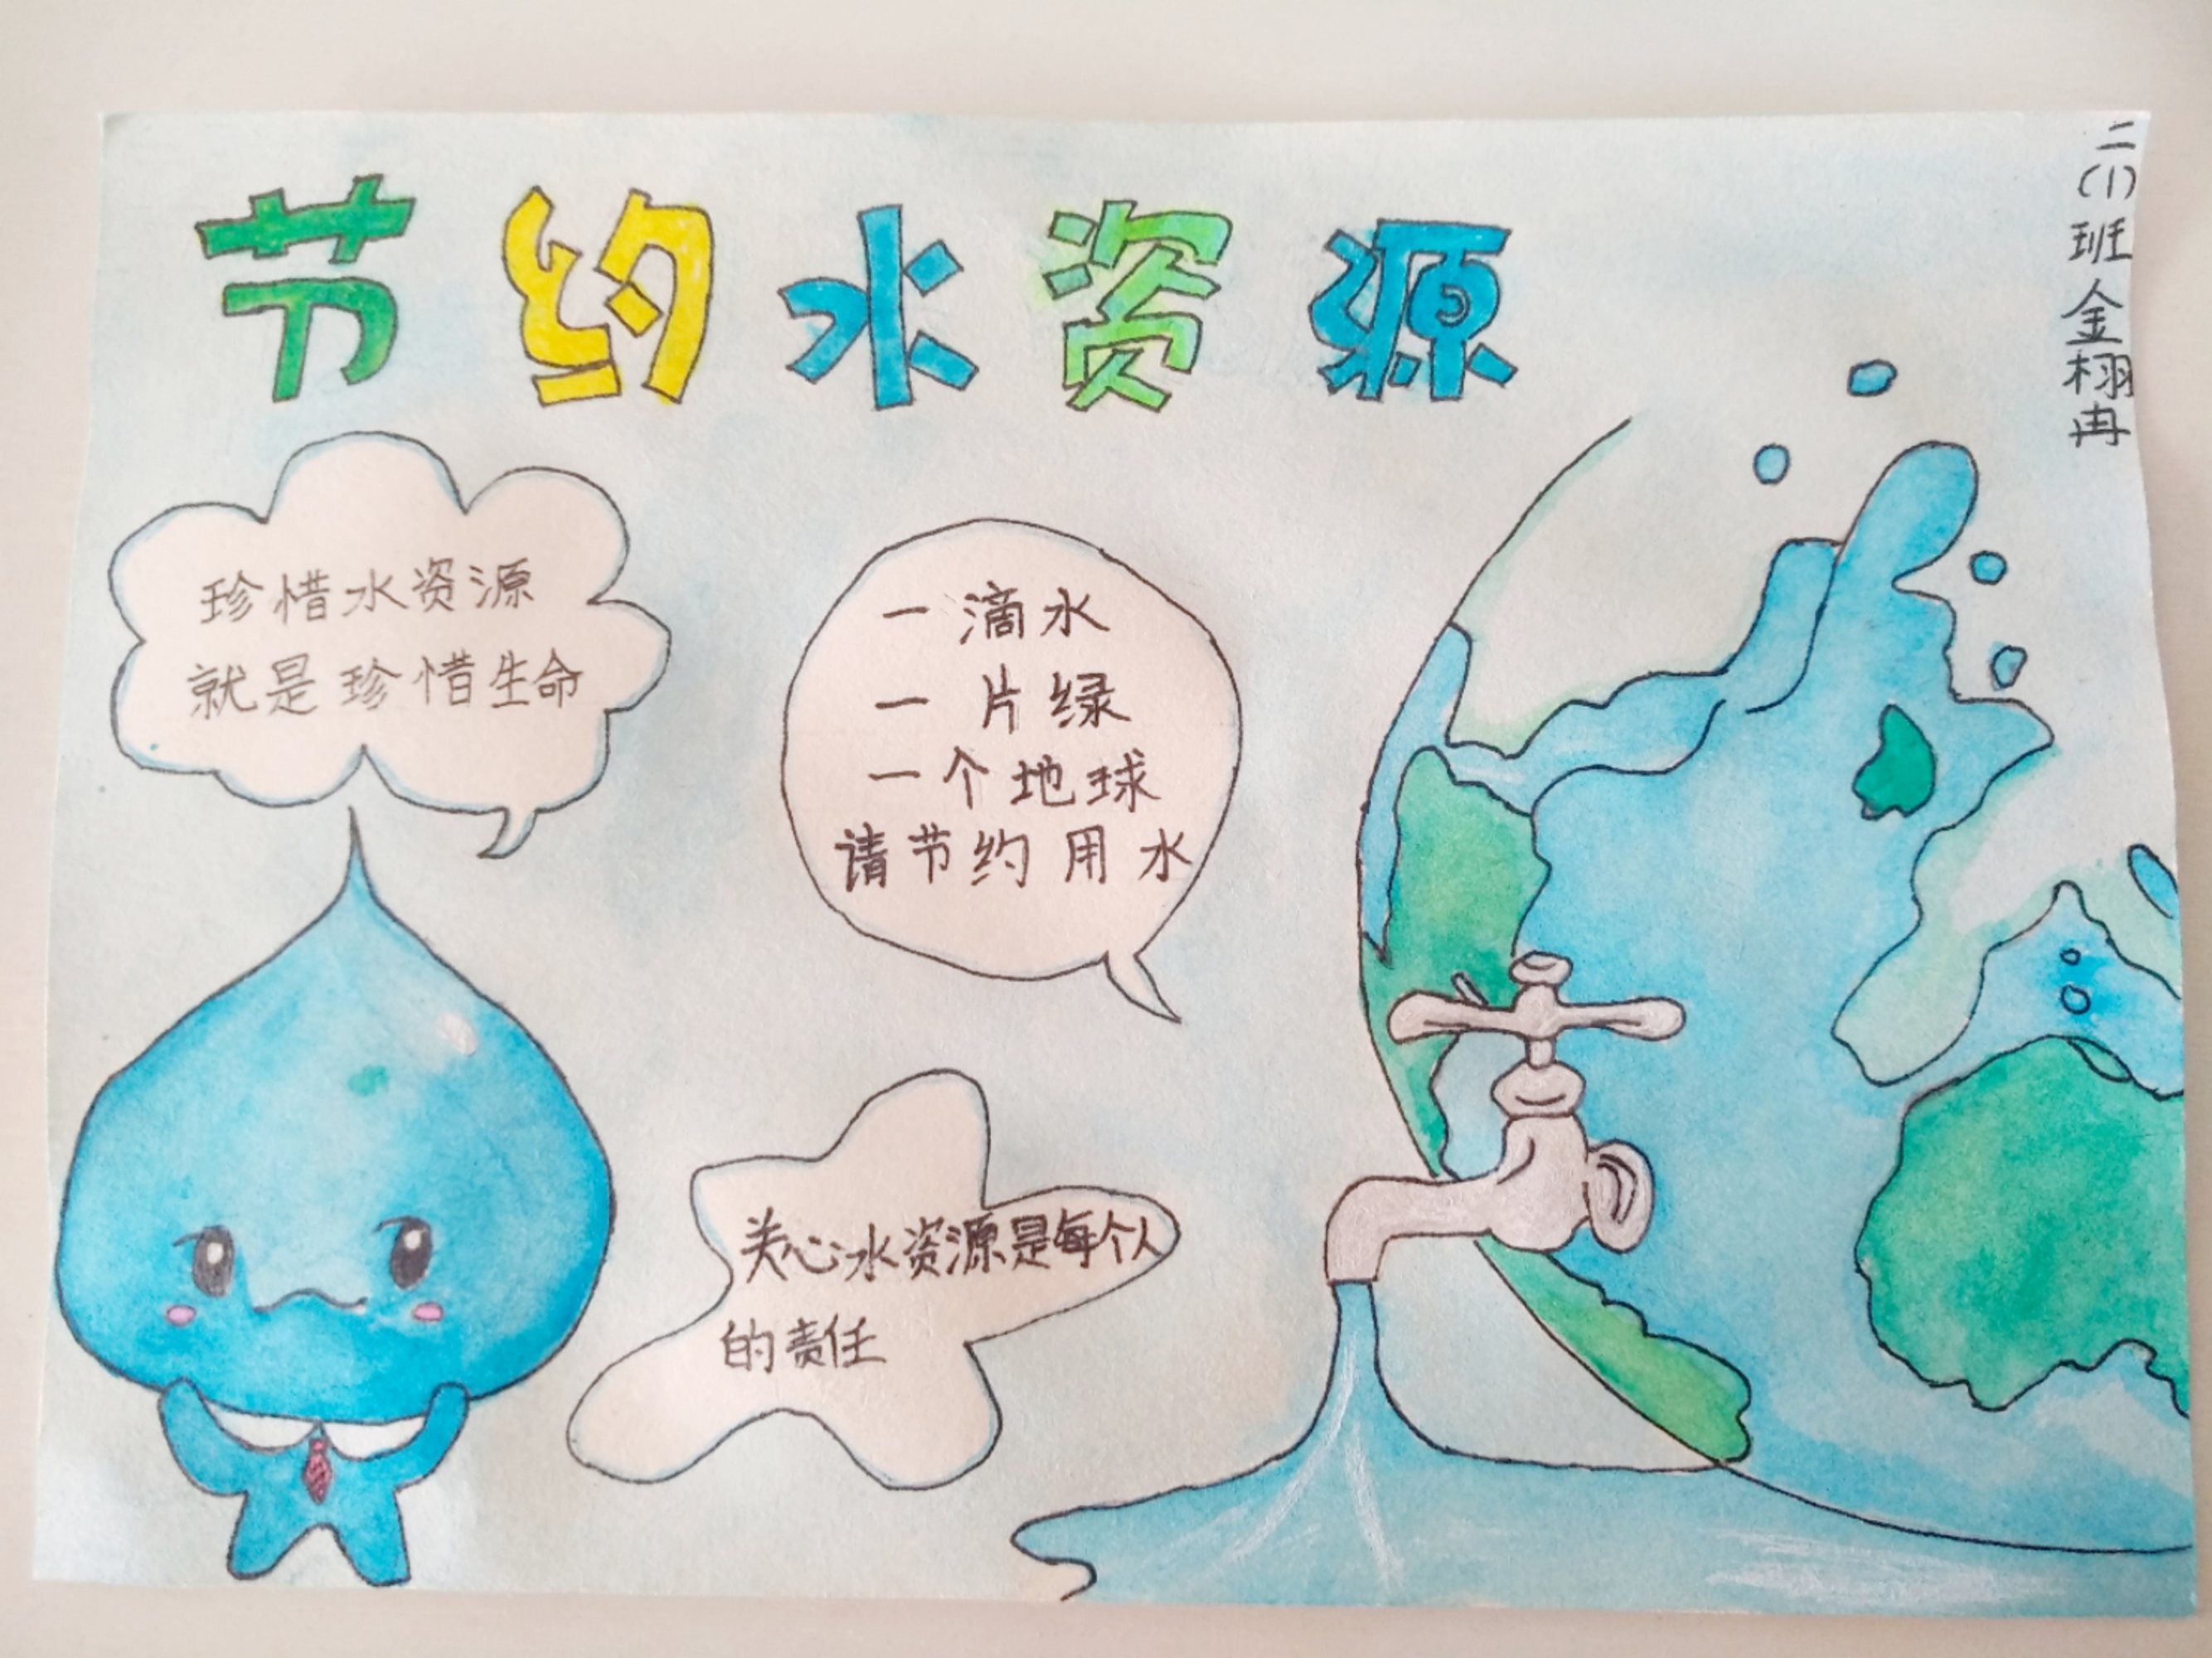 节约水资源
二(1)班金栩冉
珍惜水资源
就是珍惜生命
一滴水
一片绿
一个地球
请节约用水
关心水资源是每个人
的责任